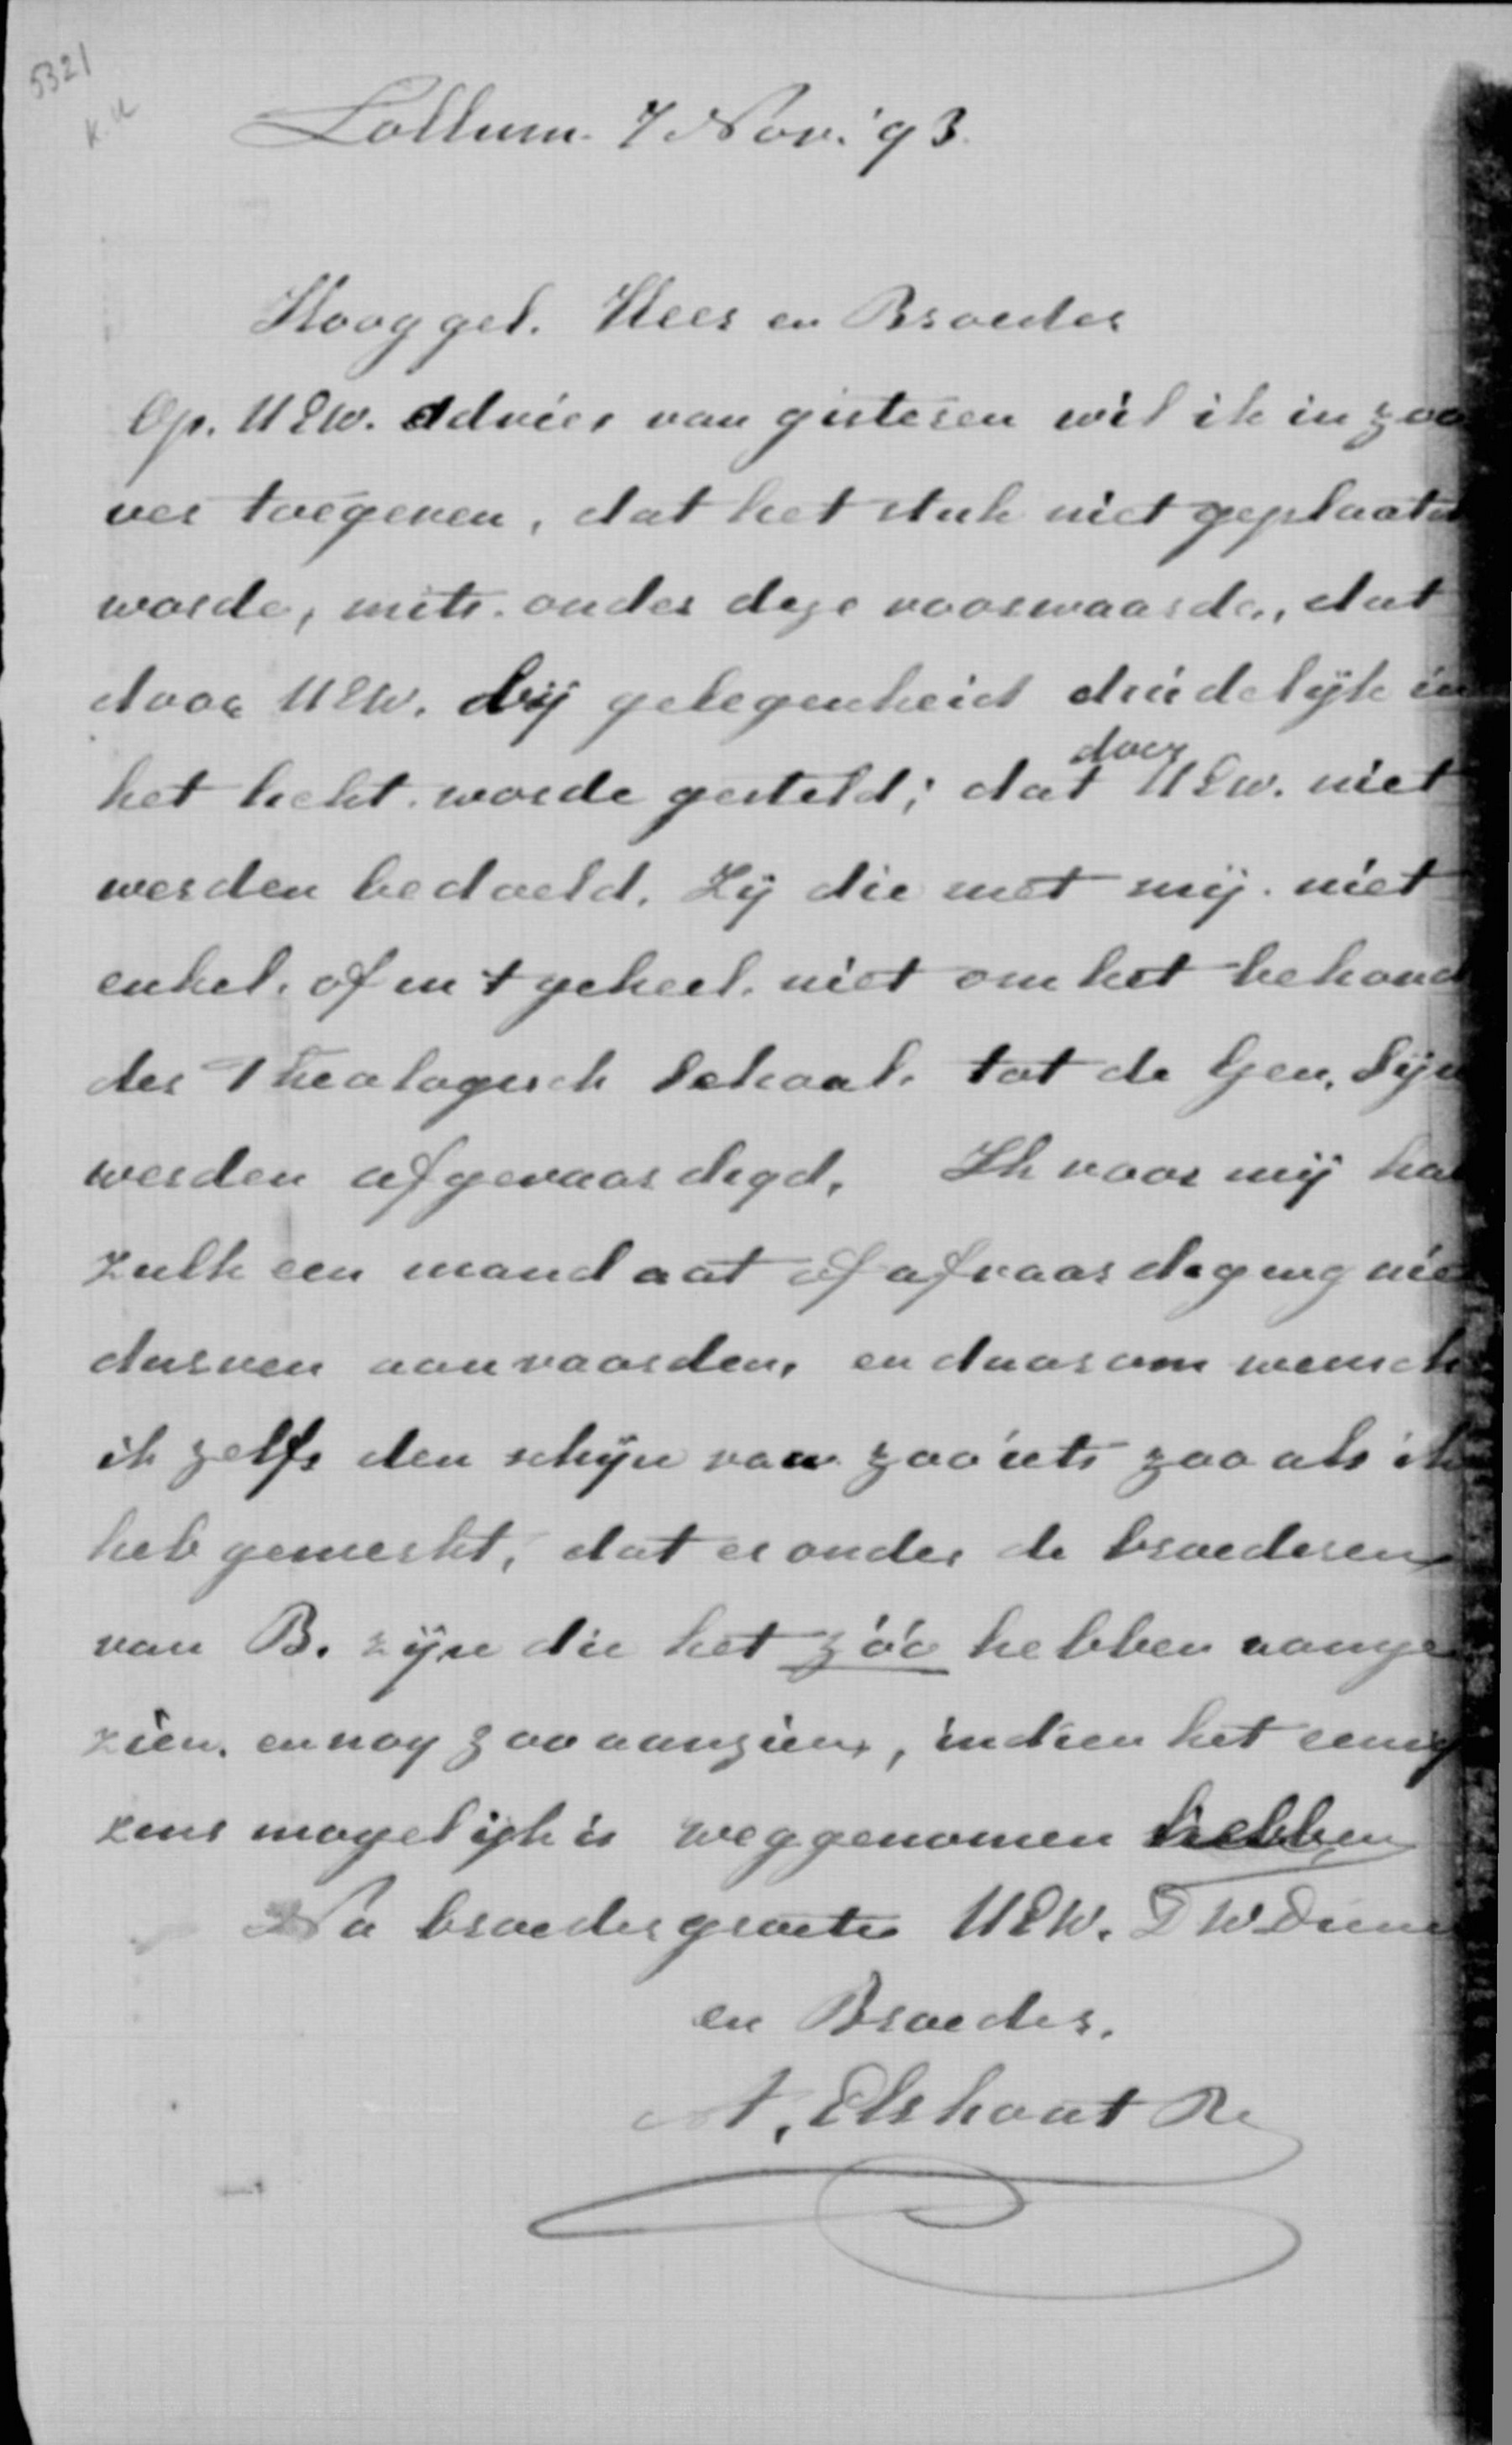 5321
K. U
Lollum. 7 Nov. '93.
Hooggel. Heer en Broeder
Op. UEW. advies van gisteren wil ik in zoo
ver toegeven, dat het stuk niet geplaatst
worde, mits onder deze voorwaarde, dat
door UEW. bij gelegenheid duidelijk in
het licht worde gesteld; dat door UEw. niet
werden bedoeld. Zij die met mij. niet
enkel. of in 't geheel. niet om het behoud
der Theologisch School. tot de Gen. Syn
werden afgevaardigd. Ik voor mij had
zulk een mandaat of afvaardiging niet
durven aanvaarden, en daarom wensch
ik zelfs den schijn van zoo iets zoo als ik
heb gemerkt, dat er onder de broederen
van B. zijn die het zóó hebben aange
zien. en nog zoo aanzien, indien het eenig
zins mogelijk is weggenomen hebben
Na broedergroete UEW. DWDien
en Broeder.
A. Elshout